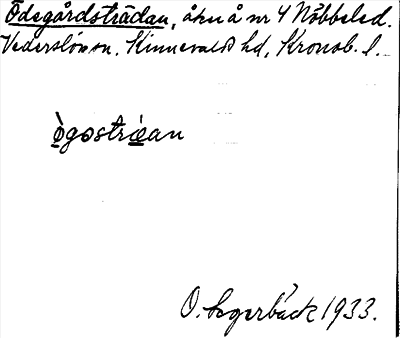 Ödegårdsträdan, åker å nr 4 Nöbbeled.
Vederslöv sn. Kinnevalds hd, Kronob. l.
ò̲gɷstrǽ̲an
O. Segerbäck 1933.